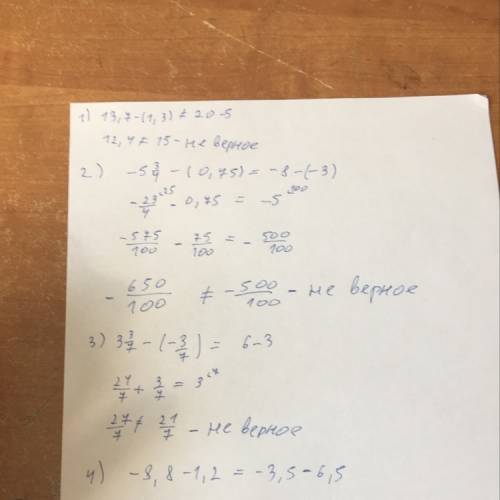 1) 13,7-(1,3) ≠ 20-5
12,4 ≠ 15 - не верное
2) -5 3/4 - (0,75) = -8-(-3)
-23/4 ·25 - 0,75 = -5 ·100
-575/100 - 75/100 = - 500/100
- 650/100 ≠ - 500/100 - не верное
3) 3 3/7 - (-3/7) = 6-3
24/7 + 3/7 = 3 ·7
27/7 ≠ 21/7 - не верное
4) -8,8-1,2 = -3,5-6,5